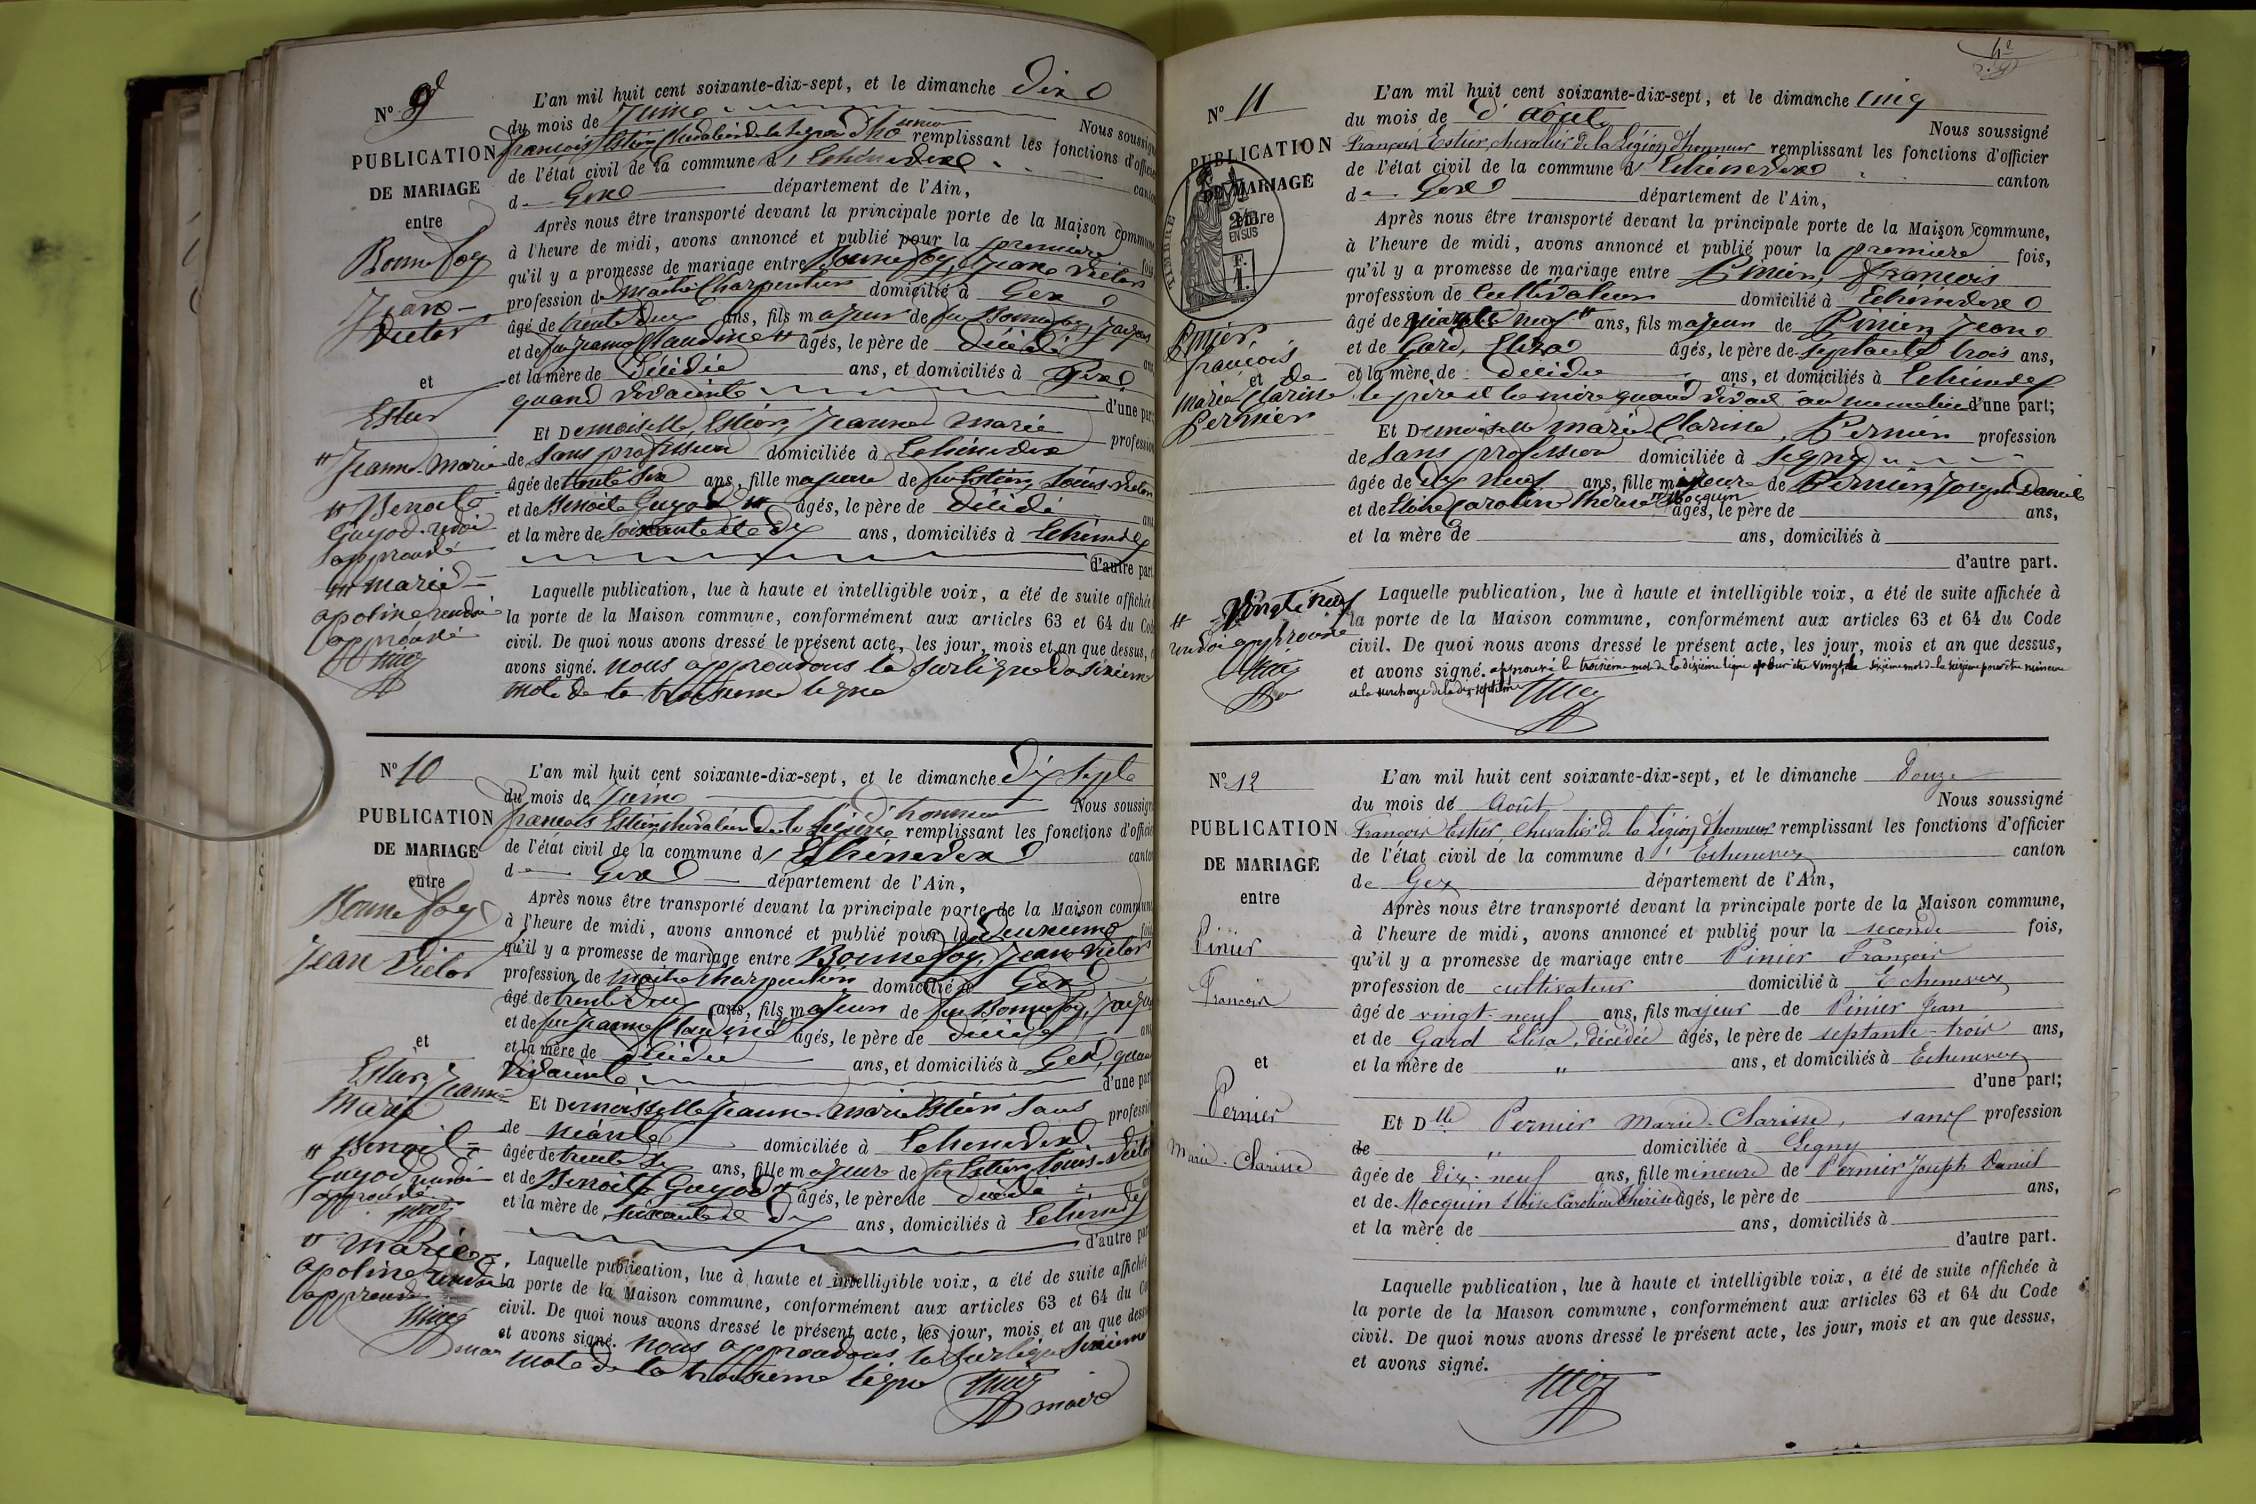 N° 9
PUBLICATION
DE MARIAGE
entre
Bonnefoy
Jean
Victor
et
Estier
Jeanne Marie
Benoite
Guyod
approuvé
marie
apoline
approuvé
L'an mil huit cent soixante-dix-sept, et le dimanche dix
du mois de Juin Nous soussigné
François Estier Chevalier de la Légion d'honneur remplissant les fonctions d'officier
de l'état civil de la commune d'Echenevex canton
de Gex département de l'Ain,
Après nous être transporté devant la principale porte de la Maison commune,
à l'heure de midi, avons annoncé et publié pour la première fois,
qu'il y a promesse de mariage entre Bonnefoy, Jean Victor
profession de Maitre Charpentier domicilié à Gex
âgé de trente deux ans, fils majeur de feu Bonnefoy, Jacques
et de feu Jeanne Claudine âgés, le père de décédé ans
et la mère de décédée ans, et domiciliés à Gex
quand vivaint d'une part;
Et Demoiselle Estier, Jeanne Marie profession
de Sans profession domiciliée à Echenevex
âgée de trente six ans, fille majeure de feu Estier Louis-Victor
et de Benoite Guyod âgés, le père de décédé ans
et la mère de soixante et dix ans, domiciliés à Echenevex
d'autre part.
Laquelle publication, lue à haute et intelligible voix, a été de suite affichée
la porte de la Maison commune, conformément aux articles 63 et 64 du Code
civil. De quoi nous avons dressé le présent acte, les jour, mois et an que dessus,
avons signé. nous approuvons la surligne du sixième
mots de la troisieme ligne
N° 10
PUBLICATION
DE MARIAGE
entre
Bonnefoy
Jean Victor
et
Estier Jeanne
Marie
Benoite
Guyod
approuvé
marie
apoline
approuvé
L'an mil huit cent soixante-dix-sept, et le dimanche dix sept
du mois de Juin Nous soussigné
François Estier Chevalier de la Légion d'honneur remplissant les fonctions d'officier
de l'état civil de la commune d'Echenevex canton
de Gex département de l'Ain,
Après nous être transporté devant la principale porte de la Maison commune
à l'heure de midi, avons annoncé et publié pour la deuxieme fois
qu'il y a promesse de mariage entre Bonnefoy, Jean Victor
profession de Maitre Charpentier domicilié à Gex
âgé de trente deux ans, fils majeur de feu Bonnefoy, Jacques
et de feu Jeanne Claudine âgés, le père de décédé ans
et la mère de décédée ans, et domiciliés à Gex, quand
vivaint d'une part
Et Demoisselle Jeanne-Marie Estier sans profession
de néante domiciliée à Echenevex
âgée de trente six ans, fille majeure de feu Estier Louis-Victor
et de Benoite Guyod âgés, le père de décédé
et la mère de soixante et dix ans, domiciliés à Echenevex
d'autre part
Laquelle publication, lue à haute et intelligible voix, a été de suite affichée
la porte de la Maison commune, conformément aux articles 63 et 64 du Code
civil. De quoi nous avons dressé le présent acte, les jour, mois et an que dessus
et avons signé. Nous approuvons la surligne sixième
mots de la troisieme ligne
maire
N° 11
PUBLICATION
DE MARIAGE
entre
TIMBRE
EN SUS
Pinier
François
et de
Marie Clarisse
Pernier
Vingt neuf
approuvé
L'an mil huit cent soixante-dix-sept, et le dimanche cinq
du mois de d'Août Nous soussigné
François Estier, chevalier de la Légion d'honneur remplissant les fonctions d'officier
de l'état civil de la commune d'Echenevex canton
de Gex département de l'Ain,
Après nous être transporté devant la principale porte de la Maison commune,
à l'heure de midi, avons annoncé et publié pour la première fois,
qu'il y a promesse de mariage entre Pinier, François
profession de Cultivateur domicilié à Echenevex
âgé de neuf ans, fils majeur de Pinier Jean
et de Gard, Eliza âgés, le père de septante trois ans,
et la mère de décédée ans, et domiciliés à Echenevex
le père et la mère quand vivait au d'une part;
Et Demoiselle Marie Clarisse, Pernier profession
de Sans profession domiciliée à Segny
âgée de dix neuf ans, fille mineure de Pernier, Joseph Daniel
et de Eloïse Caroline Thérèse Mocquin âgés, le père de ans,
et la mère de ans, domiciliés à
d'autre part.
Laquelle publication, lue à haute et intelligible voix, a été de suite affichée à
la porte de la Maison commune, conformément aux articles 63 et 64 du Code
civil. De quoi nous avons dressé le présent acte, les jour, mois et an que dessus,
et avons signé. approuvé le troisième mot de la dixième ligne pour être vingt, le sixième mot de la seizième pour être mineure
et la surcharge de la dix-septième
N° 12
PUBLICATION
DE MARIAGE
entre
Pinier
François
et
Pernier
Marie-Clarisse
L'an mil huit cent soixante-dix-sept, et le dimanche Douze
du mois de Août Nous soussigné
François Estier, Chevalier de la Légion d'honneur remplissant les fonctions d'officier
de l'état civil de la commune d'Echenevex canton
de Gex département de l'Ain,
Après nous être transporté devant la principale porte de la Maison commune,
à l'heure de midi, avons annoncé et publié pour la seconde fois,
qu'il y a promesse de mariage entre Pinier François
profession de cultivateur domicilié à Echenevex
âgé de vingt-neuf ans, fils majeur de Pinier Jean
et de Gard Elisa, décédée âgés, le père de septante-trois ans,
et la mère de " ans, et domiciliés à Echenevex
d'une part;
Et Dlle Pernier Marie-Clarisse, sans profession
de " domiciliée à Segny
âgée de Dix-neuf ans, fille mineure de Pernier Joseph Daniel
et de Mocquin Eloïse Caroline Thérèse âgés, le père de ans,
et la mère de ans, domiciliés à
d'autre part.
Laquelle publication, lue à haute et intelligible voix, a été de suite affichée à
la porte de la Maison commune, conformément aux articles 63 et 64 du Code
civil. De quoi nous avons dressé le présent acte, les jour, mois et an que dessus,
et avons signé.